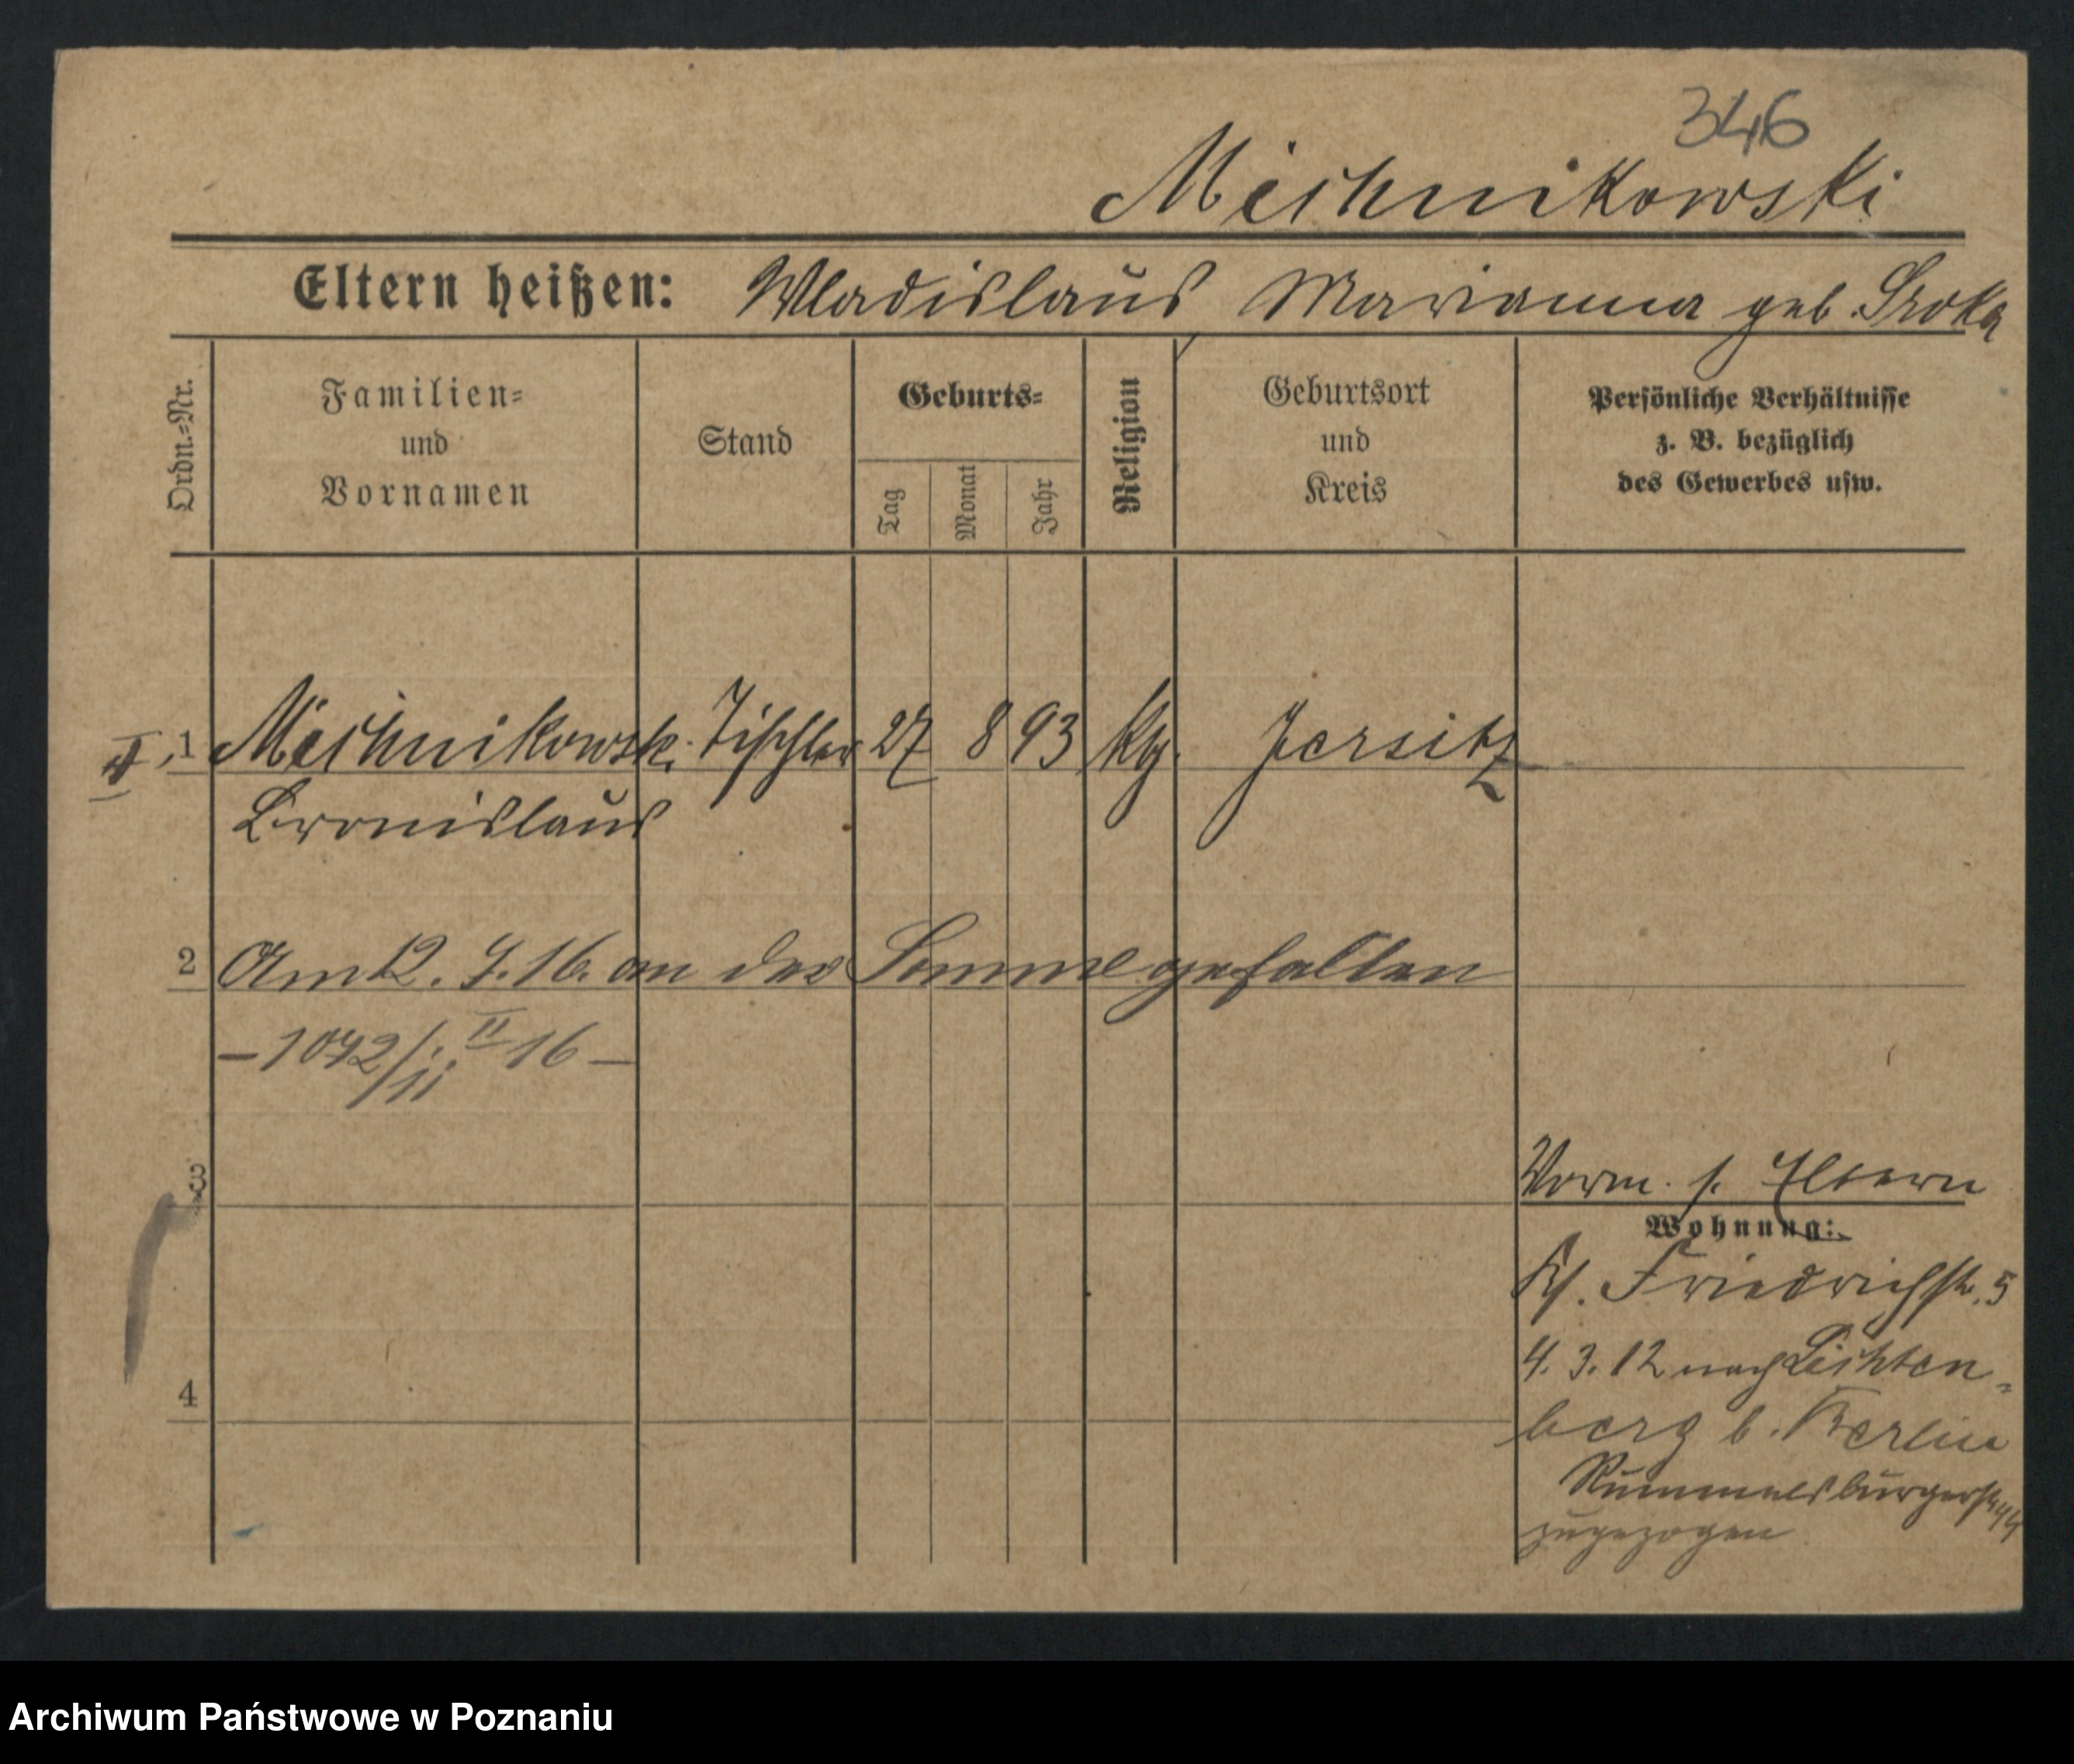 346
Mechnikowski
Eltern heißen: Wladislaus Marianna geb. Sroka
Ordn.=Nr.
Familien=
und
Vornamen
Stand
Geburts=
Tag
Monat
Jahr
Religion
Geburtsort
und
Kreis
Persönliche Verhältnisse
z. B. bezüglich
des Gewerbes usw.
II. 1 Mechnikowsk. Tischler 27 8 93 Kg. Jersitz
Bronislaus
2 Am 12. 9. 16. an der Somme gefallen
– 1042/11 II 16 –
3
Vorm. s. Eltern
Wohnung:
Friedrichstr. 5
4. 3. 12 nach Lichten-
4
berg b. Berlin
Rummelsburgerstr 44
zugezogen
Archiwum Państwowe w Poznaniu